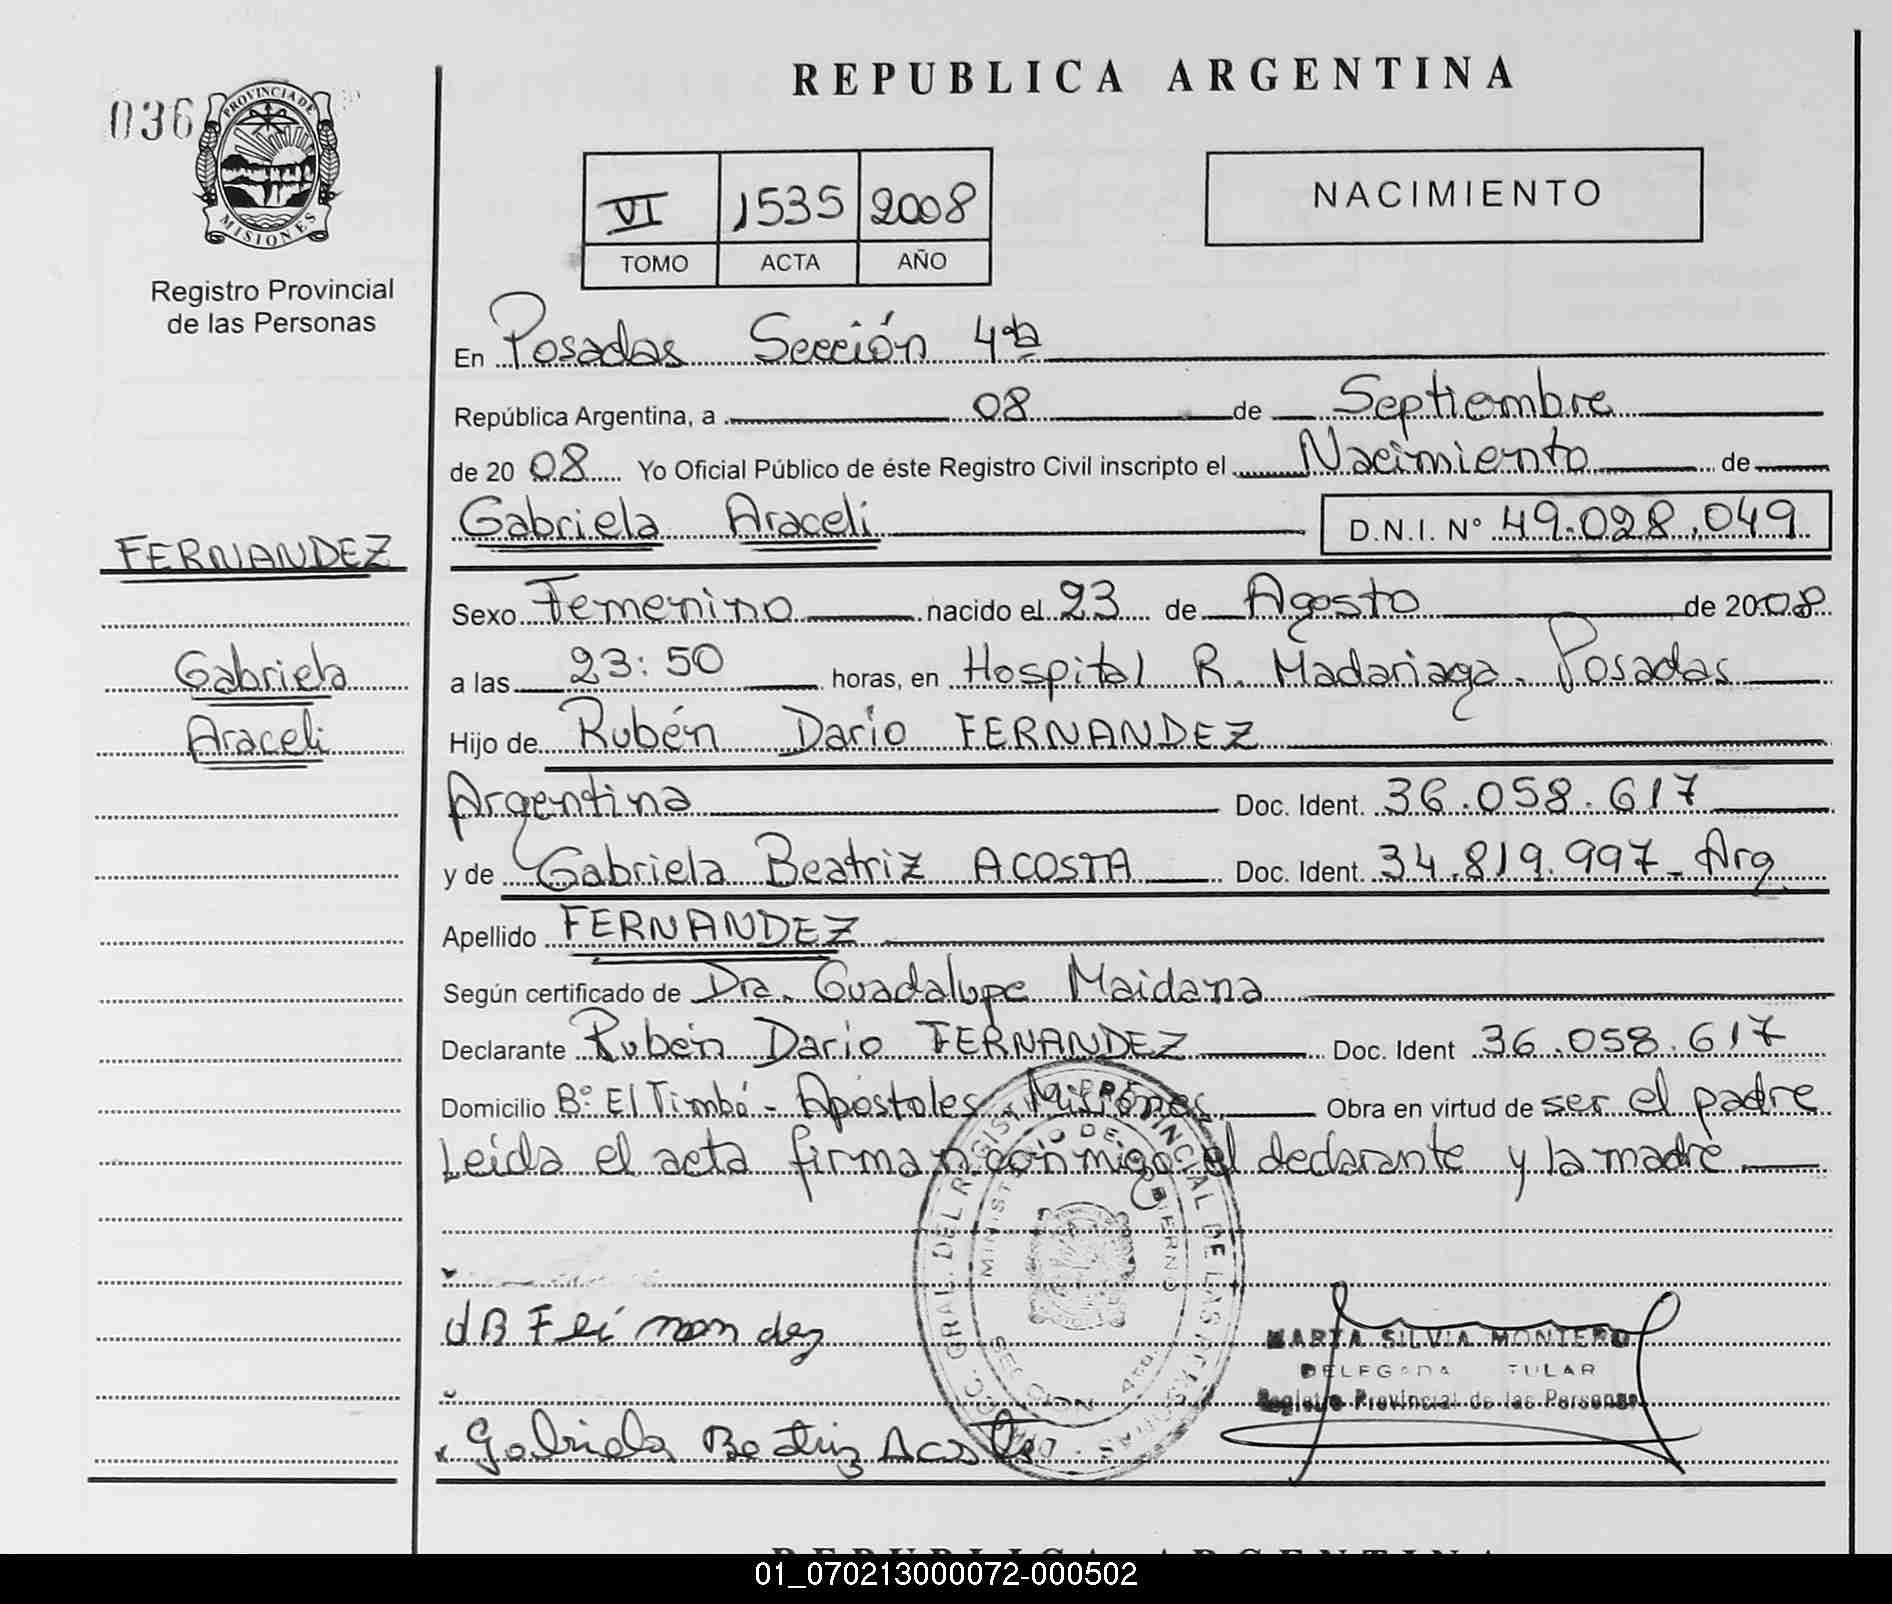 REPUBLICA ARGENTINA
036
PROVINCIA DE
MISIONES
Registro Provincial
de las Personas
VI 1535 2008
TOMO ACTA AÑO
NACIMIENTO
En Posadas Sección 4ta
República Argentina, a 08 de Septiembre
de 2008 Yo Oficial Público de éste Registro Civil inscripto el Nacimiento de
Gabriela Araceli D.N.I. Nº 49.028.049
FERNANDEZ
Gabriela
Araceli
Sexo Femenino nacido el 23 de Agosto de 2008
a las 23:50 horas, en Hospital R. Madariaga. Posadas
Hijo de Rubén Dario FERNANDEZ
Argentina Doc. Ident. 36.058.617
y de Gabriela Beatriz ACOSTA Doc. Ident. 34.819.997 - Arg
Apellido FERNANDEZ
Según certificado de Dra. Guadalupe Maidana
Declarante Rubén Dario FERNANDEZ Doc. Ident 36.058.617
Domicilio Bº El Timbó - Apóstoles - Misiones Obra en virtud de ser el padre
Leída el acta firman conmigo el declarante y la madre
MARTA SILVIA MONTERO
DELEGADA TITULAR
Registro Provincial de las Personas
Gabriela Beatriz Acosta
REPUBLICA ARGENTINA
01_070213000072-000502